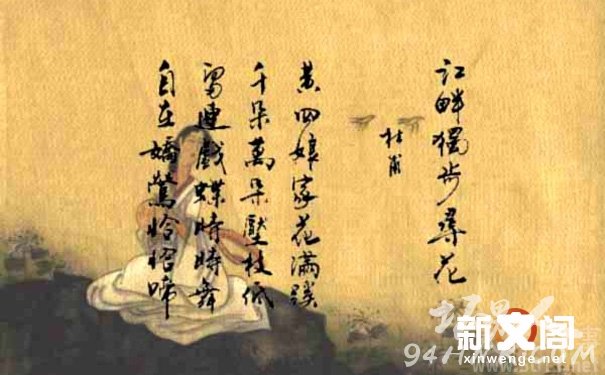 江畔獨步尋花
杜甫
黄四娘家花滿蹊
千朵萬朵壓枝低
留連戲蝶時時舞
自在嬌鶯恰恰啼
新文阁
xinwenge.net